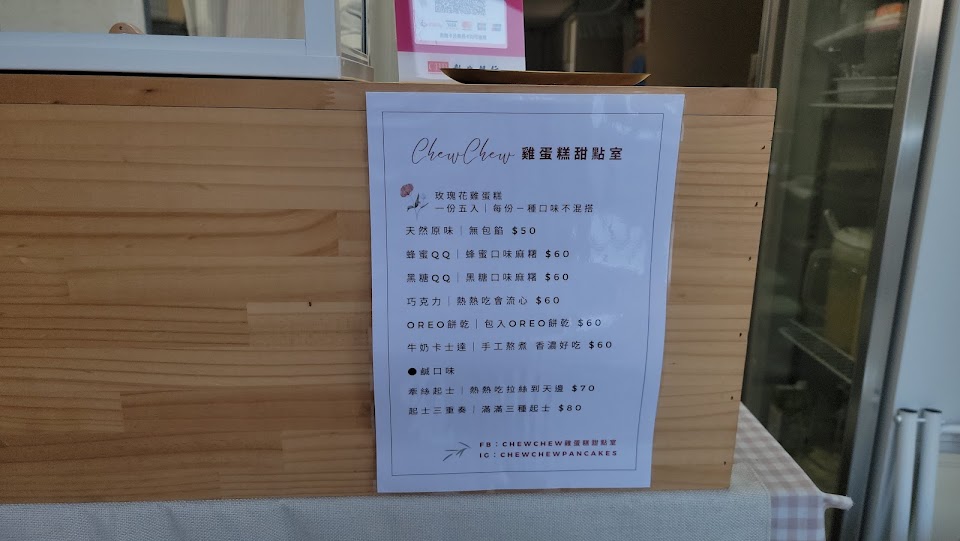 ChewChew 雞蛋糕甜點室
玫瑰花雞蛋糕
一份五入｜每份一種口味不混搭
天然原味｜無包餡 $50
蜂蜜QQ｜蜂蜜口味麻糬 $60
黑糖QQ｜黑糖口味麻糬 $60
巧克力｜熱熱吃會流心 $60
OREO餅乾｜包入OREO餅乾 $60
牛奶卡士達｜手工熬煮 香濃好吃 $60
●鹹口味
牽絲起士｜熱熱吃拉絲到天邊 $70
起士三重奏｜滿滿三種起士 $80
FB：CHEWCHEW雞蛋糕甜點室
IG：CHEWCHEWPANCAKES